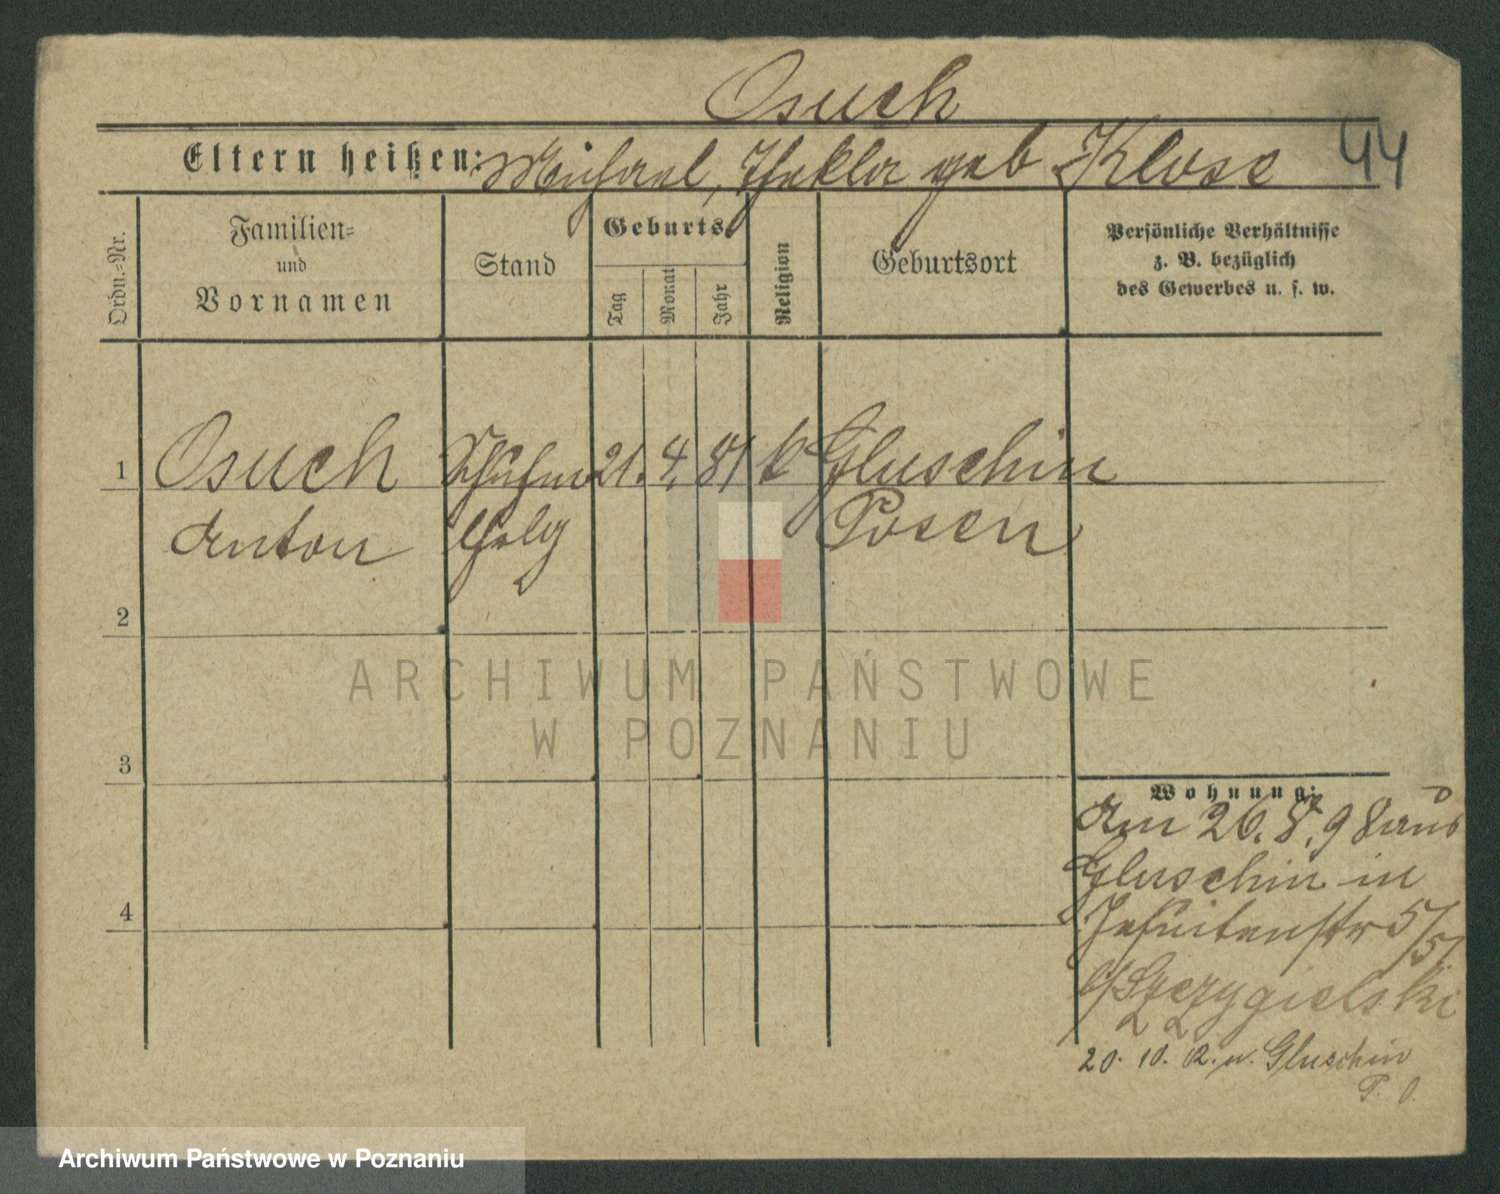 Osuch
Eltern heißen: Michael, Thekla geb Klose 44
Ordn.=Nr.
Familien=
und
Vornamen
Stand
Geburts=
Tag
Monat
Jahr
Religion
Geburtsort
Persönliche Verhältnisse
z. B. bezüglich
des Gewerbes u. s. w.
1 Osuch 21. 4. 81 k Gluschin
Anton Posen
2
3
4
ARCHIWUM PAŃSTWOWE
W POZNANIU
Wohnung:
Am 26. 8. 98 aus
Gluschin in
Jesuitenstr 5/
b/ Szczygielski
20. 10. Gluschin
P. O.
Archiwum Państwowe w Poznaniu